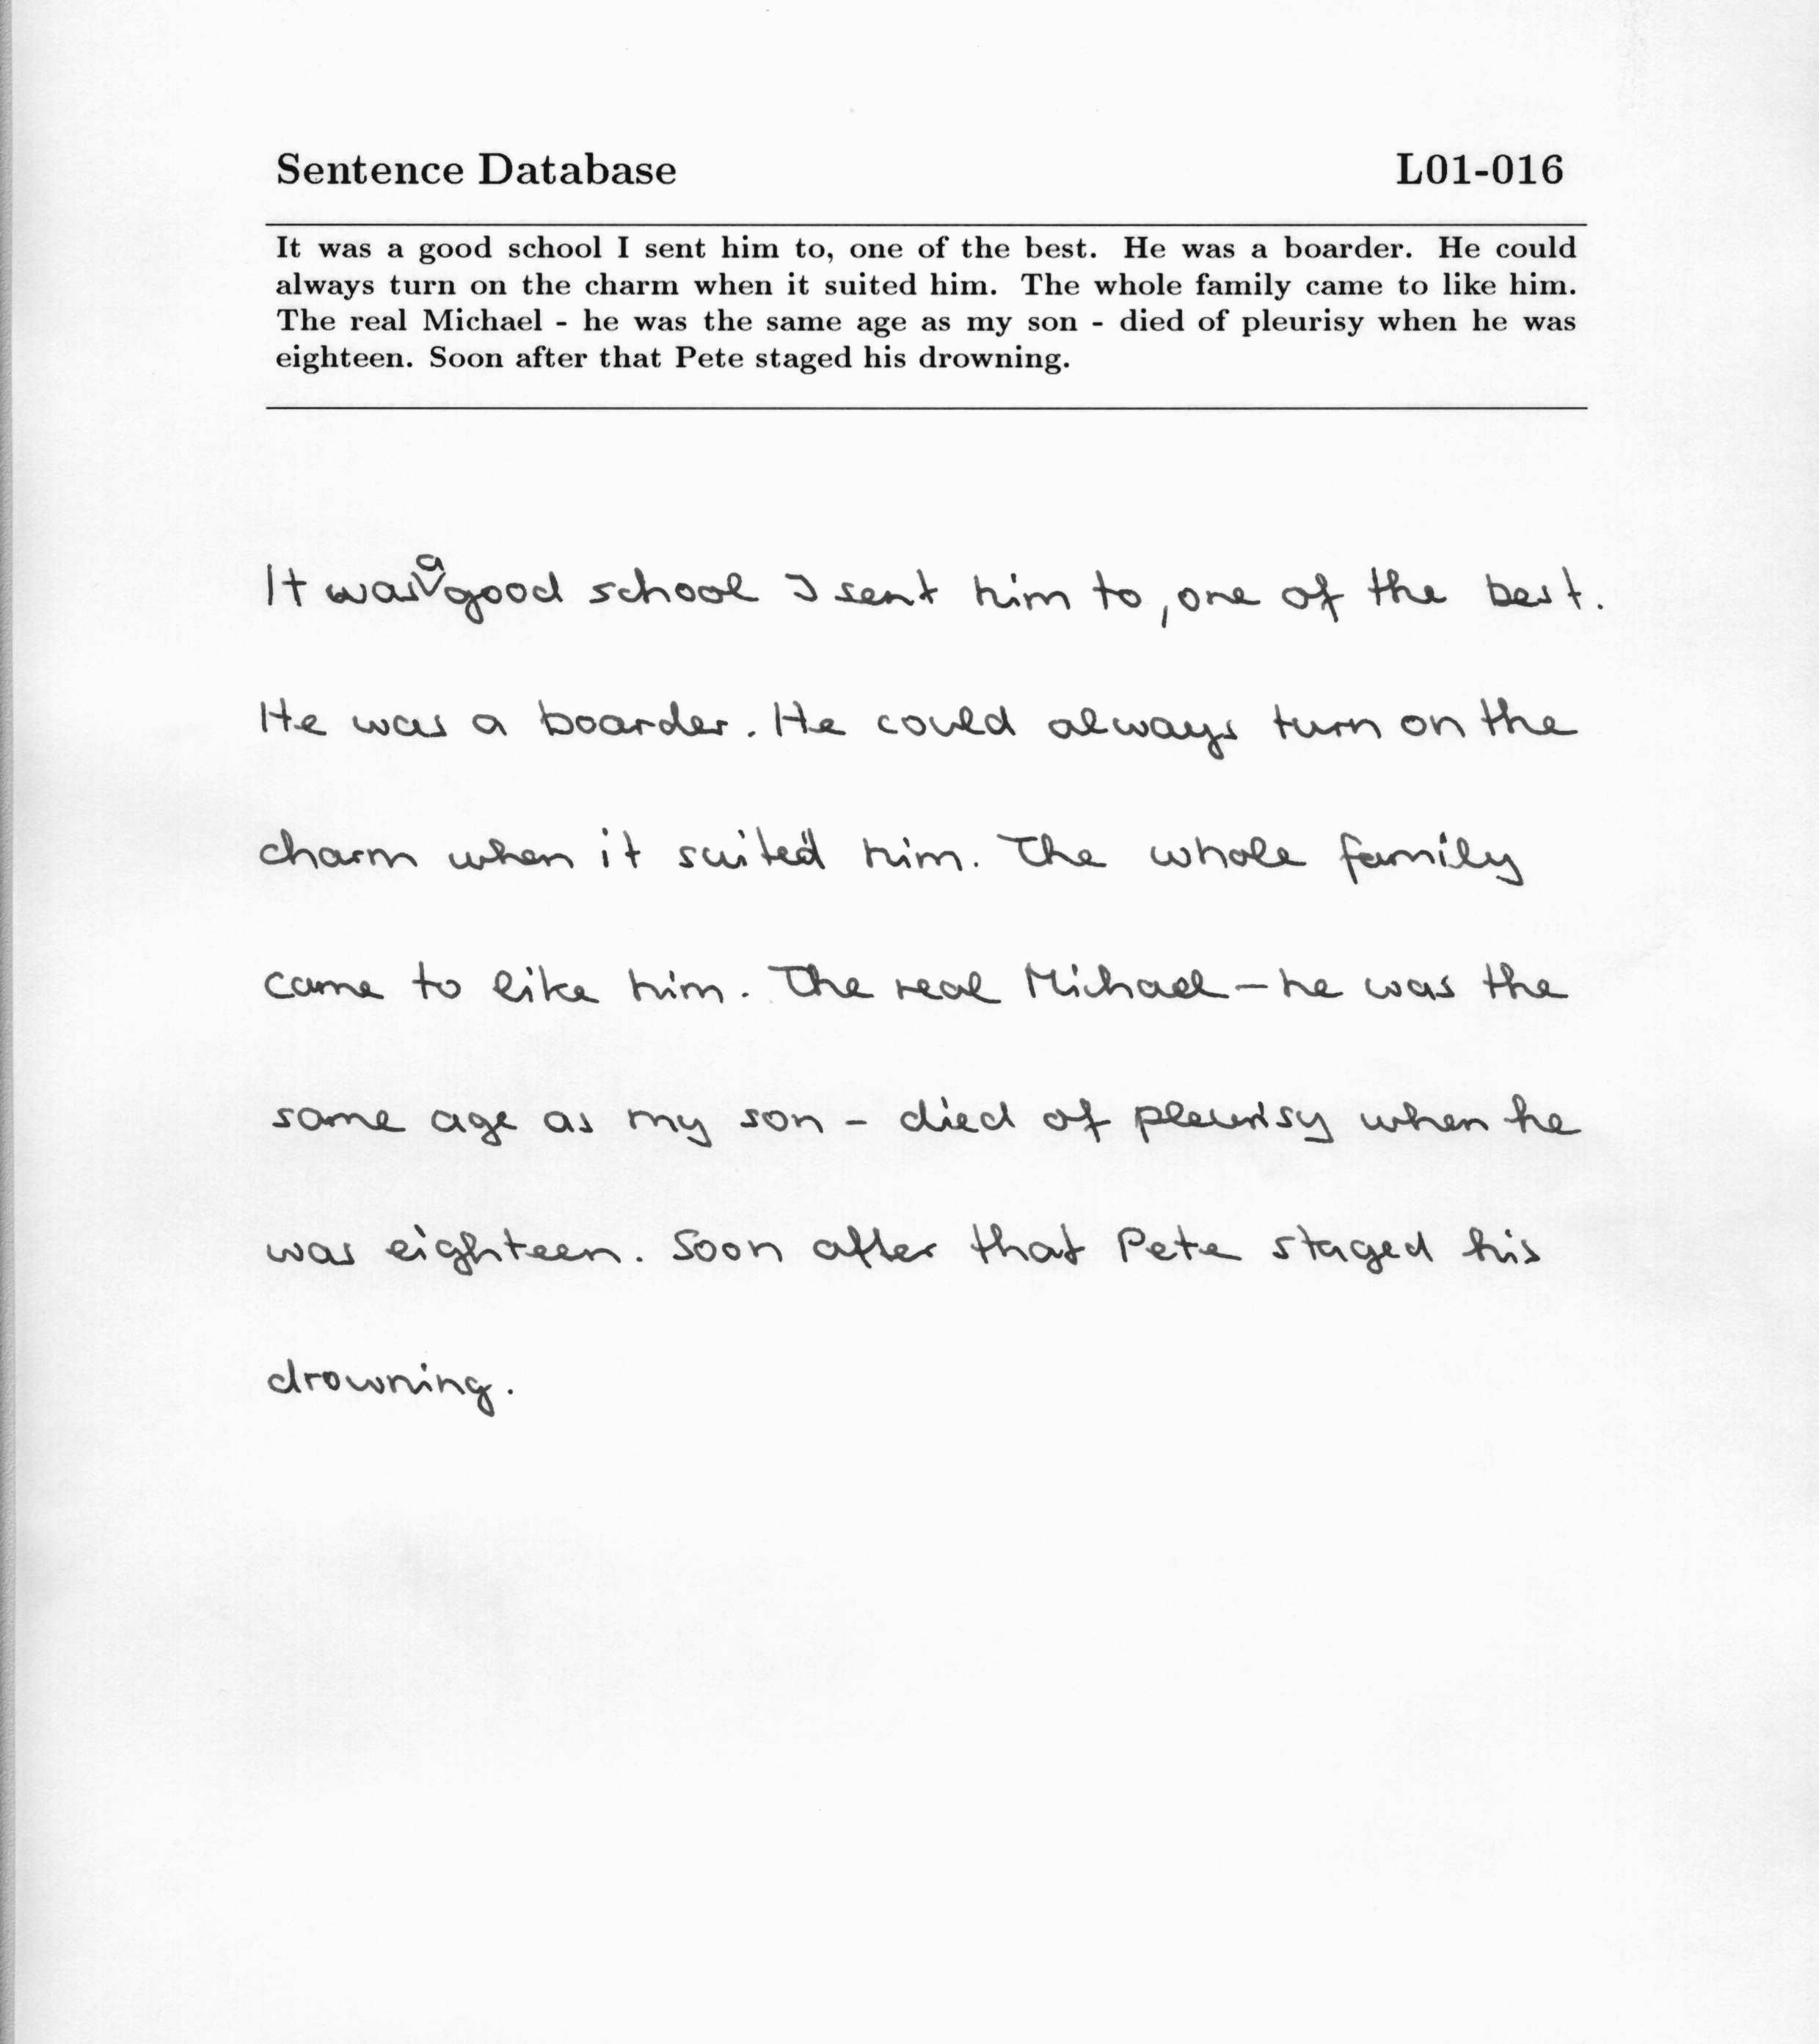 Sentence Database L01-016
It was a good school I sent him to, one of the best. He was a boarder. He could
always turn on the charm when it suited him. The whole family came to like him.
The real Michael - he was the same age as my son - died of pleurisy when he was
eighteen. Soon after that Pete staged his drowning.
It was a good school I sent him to, one of the best.
He was a boarder. He could always turn on the
charm when it suited him. The whole family
came to like him. The real Michael - he was the
same age as my son - died of pleurisy when he
was eighteen. Soon after that Pete staged his
drowning.